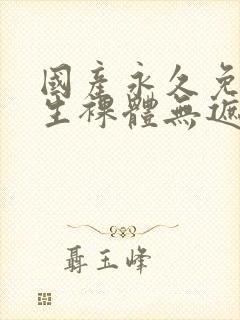 國產永久免
生裸體無遮
聶玉峰